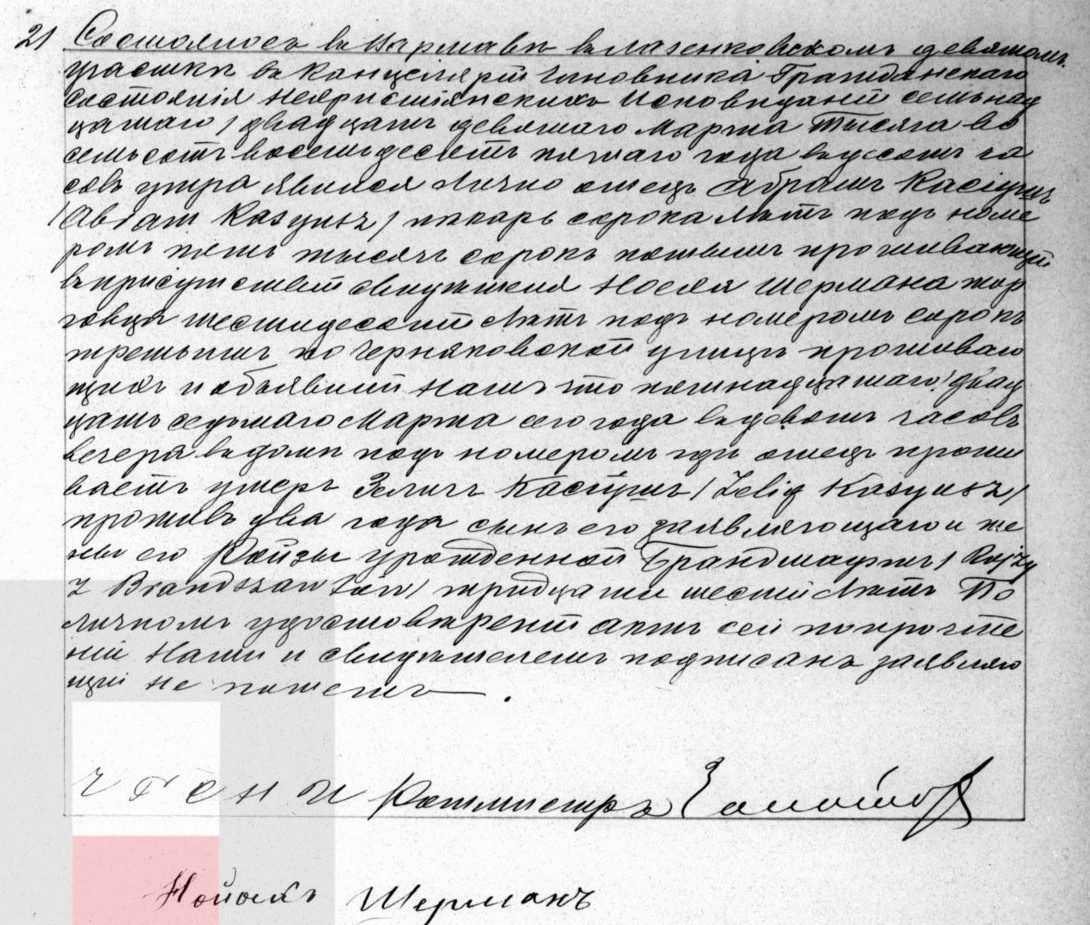 21 Состоялось въ Варшавѣ въ Лазенковскомъ девятомъ
участкѣ въ Канцеляріи Чиновника Гражданскаго
состоянія Нехристіянскихъ Исповѣданій семьнад
цатаго / двадцать девятаго Марта Тысяча во
семьсотъ восемьдесятъ пятаго года въ часовъ
совъ утра явился лично отецъ Абрамъ Касіушъ
/Abram Kasyusz/ пекарь сорока лѣтъ подъ номе
ромъ пять тысячъ сорокъ пятымъ проживающій
въ присутствіи свидѣтеля Шермана тор
говца шестидесяти лѣтъ подъ номеромъ сорокъ
третьимъ по Черняковской улицѣ проживаю
щихъ и объявили намъ что пятнадцатаго / двад
цать седьмаго Марта сего года въ девять часовъ
вечера въ домѣ подъ номеромъ гдѣ отецъ прожи
ваетъ умеръ Зелигъ Касіушъ /Zelig Kasyusz/
проживъ два года сынъ его заявляющаго и же
ны его Ройзы урожденной
z тридцати шести лѣтъ По
личномъ удостовѣреніи актъ сей по прочте
ніи Нами и свидѣтелемъ подписанъ заявляю
щій не пишетъ.
Ротмистръ
Шерманъ